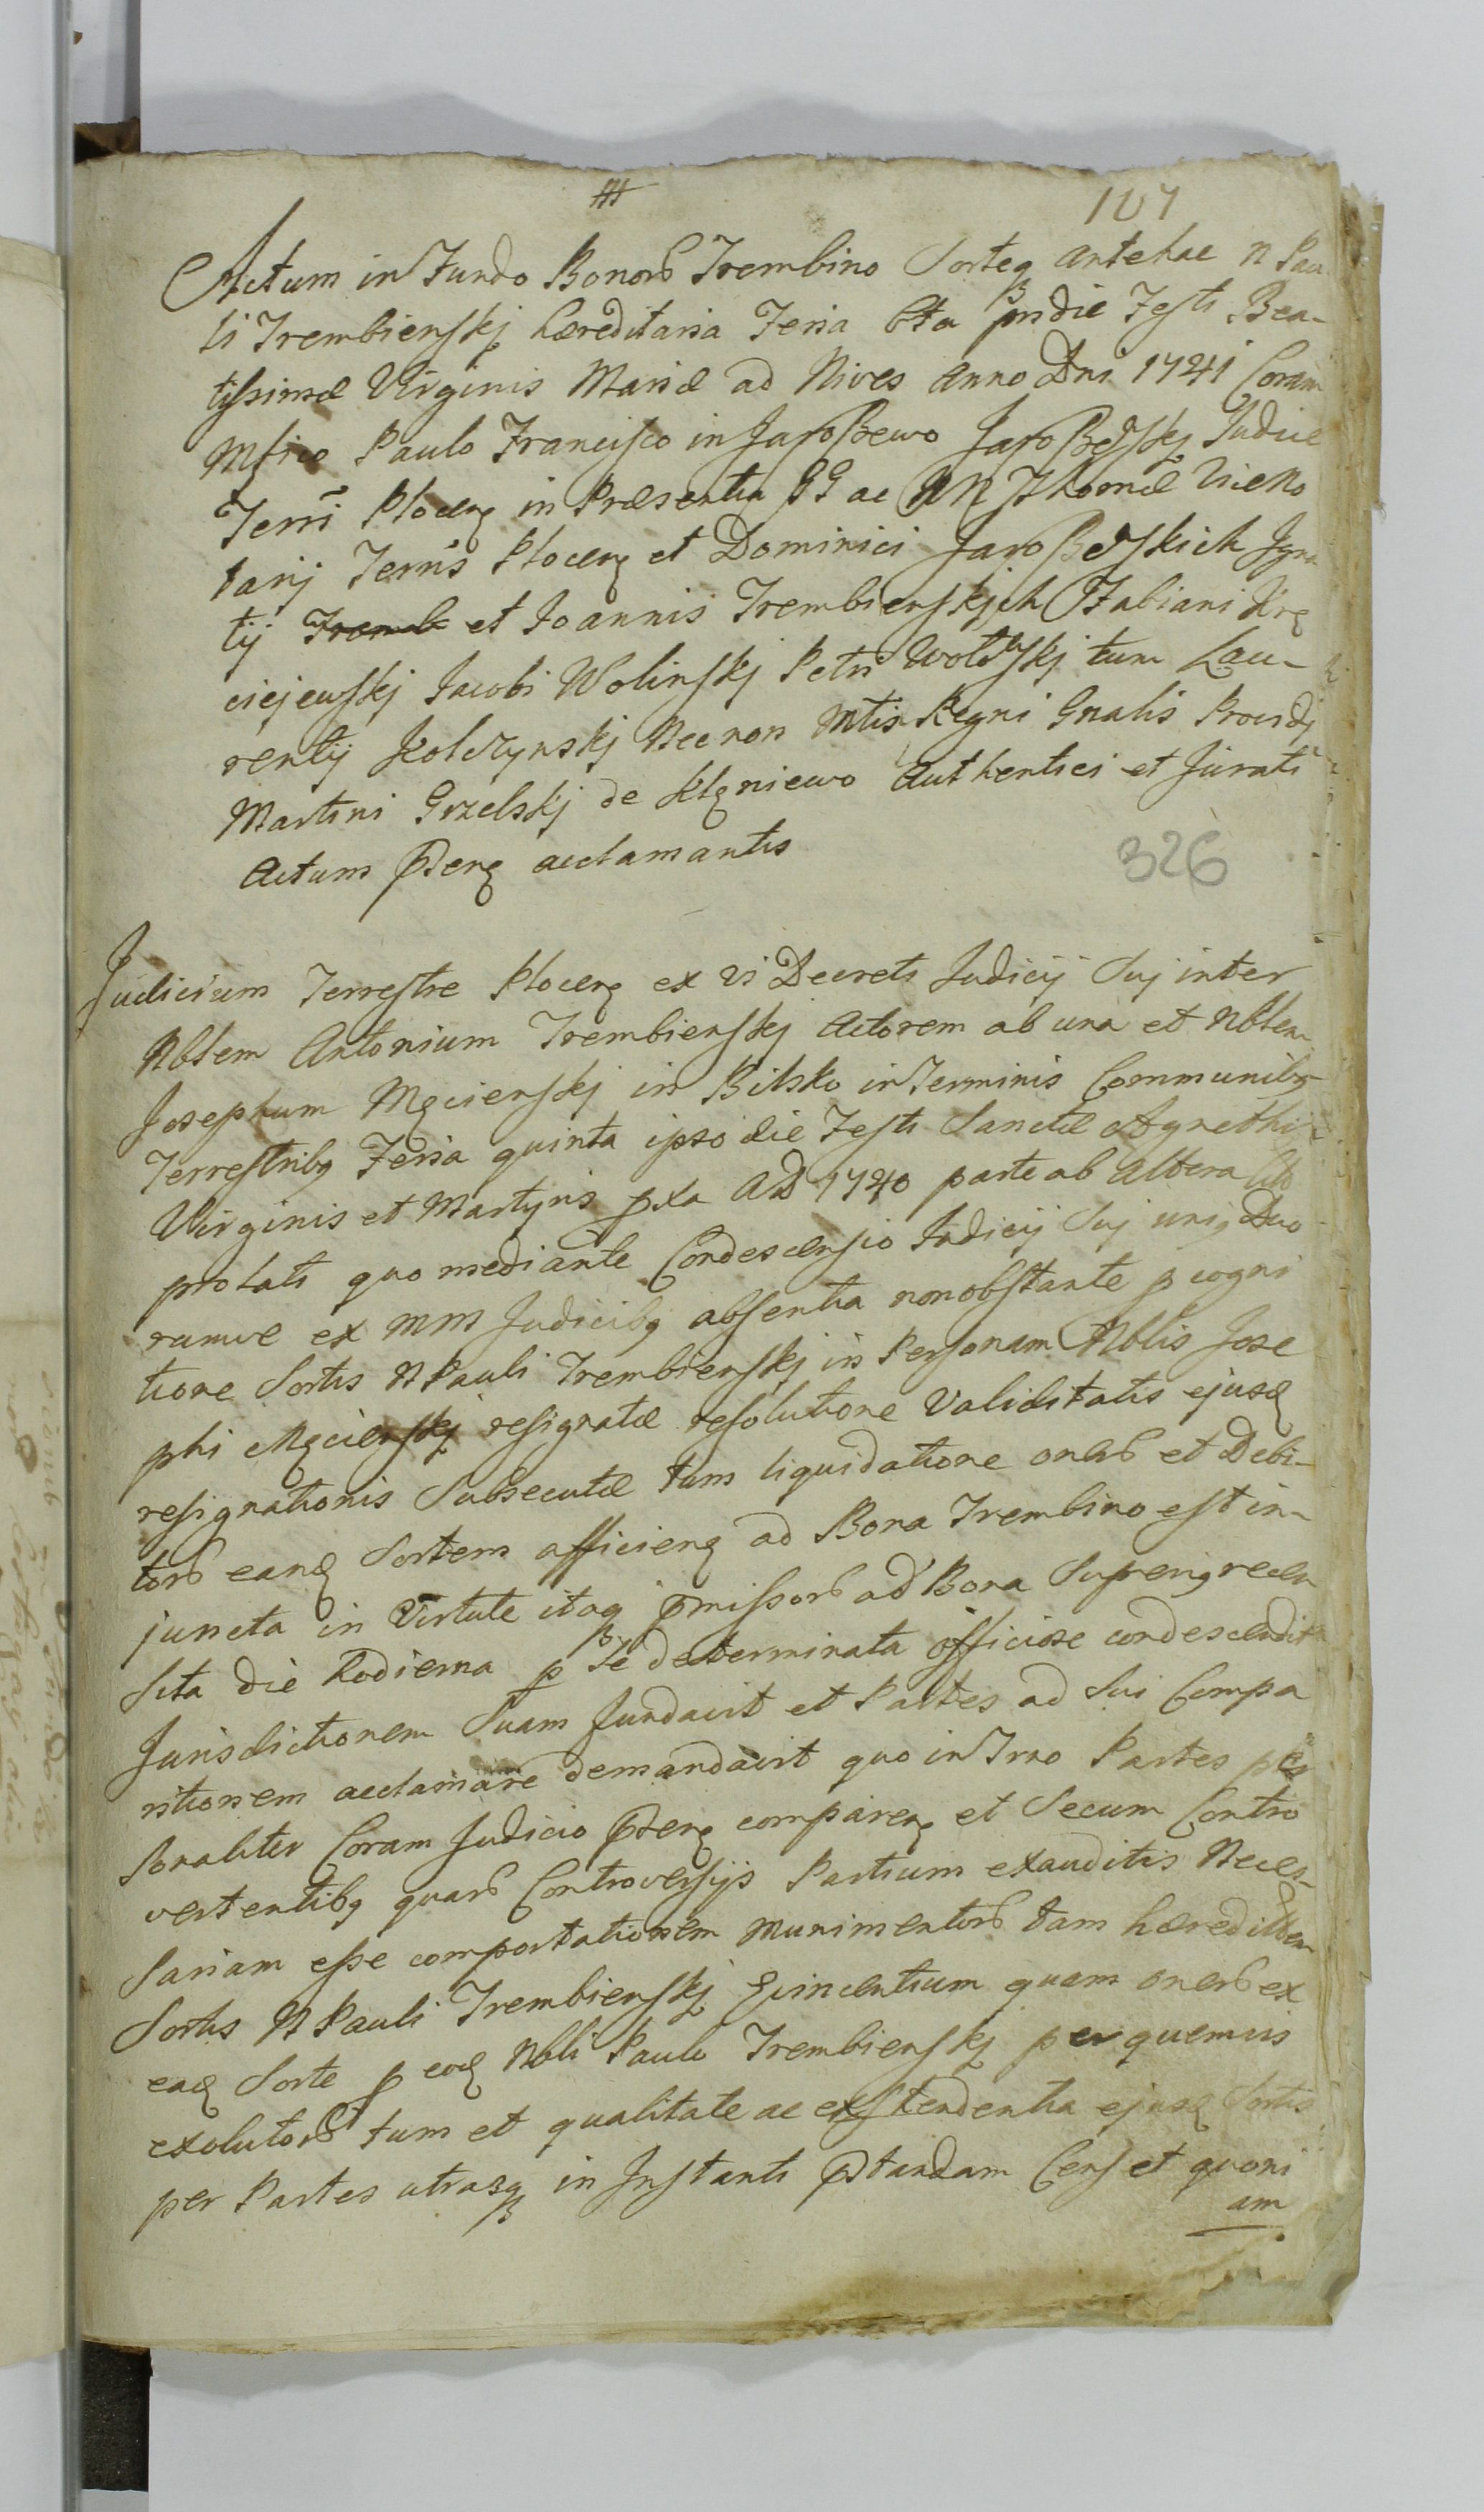 107
Actum in Fundo Bonorb Trembino Sorteq antehac N Pau
li Trembienskj hæreditaria Feria 6ta pridie Festi Bea-
tissimæ Virginis Mariæ ad Nives Anno Dni 1741 Coram
Mfico Paulo Francisco in Jaroszewo Jaroszewskj Judice
Terri Plocen in Præsentia GG ac NN Thomæ ViceNo
tarij Terris Plocen et Dominici Jaroszewskich Igna
tij Tremb et Joannis Trembienskich Fabiani Krę
ciejewskj Jacobi Wolinskj Petri Wolskj tum Lau-
rentij Kolczynskj Necnon Mtis Regni Gnalis Providj
Martini Grzelskj de Kłęniewo Authentici et Jurati
Actum Pnden acclamantis
326
Judicium Terrestre Plocen ex vi Decreti Judicij Suj inter
Nblem Antonium Trembienskj Actorem ab una et Nblem
Josephum Mącienskj in Bilsko in Terminis Communibq
Terrestribq Feria quinta ipso die Festi Sanctæ Agnethis
Virginis et Martyris pxa AD 1740 parte ab altera
prolati quo mediante Condescensio Judicij Suj uniq Duo
rumve ex MM Judicibq absentia non obstante p cogni
tione Sortis N Pauli Trembienskj in Personam Nblis Jose
phi Mącienskj resignatæ resolutione Validitatis ejusd
resignationis Subsecutæ tum liquidatione onerb et Debi-
torb eand Sortem afficien ad Bona Trembino est in-
juncta in Virtute itaq pmissorb ad Bona Supengrecen
sita die hodierna p Se determinata officiose condescendit
Jurisdictionem Suam fundavit et Partes ad Sui Compa
ritionem acclamare demandavit quo in Trno Partes per
sonaliter Coram Judicio Pnden comparen et Secum Contro
vertentibq quarb Controversijs Partium exauditis Neces-
sariam esse comportationem Munimentorb tam hæreditatem
Sortis N Pauli Trembienskj Evincentium quam onerb ex
ead Sorte p eod Nbli Paulo Trembienskj per quemvis
exolutorb tum et qualitate ac exstendentia ejusd Sortis
per Partes utrasq in Instanti Pstandam Censet quoni
am